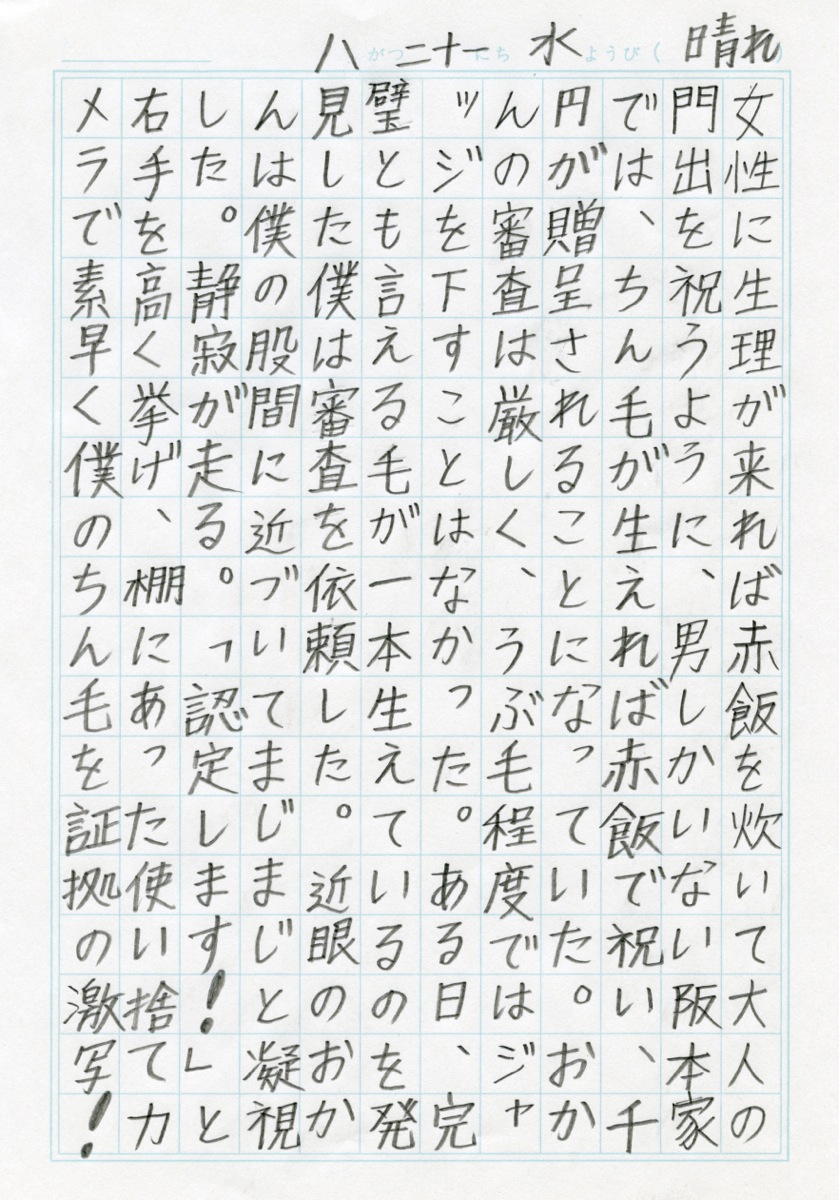 八がつ二十一にち水ようび(晴れ)
女性に生理が来れば赤飯を炊いて大人の
門出を祝うように、男しかいない阪本家
では、ちん毛が生えれば赤飯で祝い、千
円が贈呈されることになっていた。おか
んの審査は厳しく、うぶ毛程度ではジャ
ッジを下すことはなかった。ある日、完
璧とも言える毛が一本生えているのを発
見した僕は審査を依頼した。近眼のおか
んは僕の股間に近づいてまじまじと凝視
した。静寂が走る。「認定します!」と
右手を高く挙げ、棚にあった使い捨てカ
メラで素早く僕のちん毛を証拠の激写!